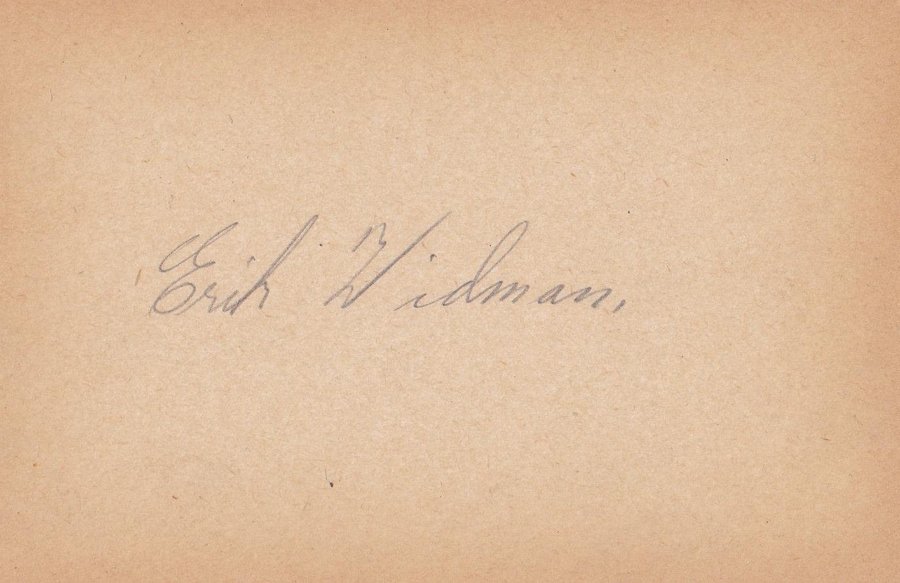 Erik Widman.